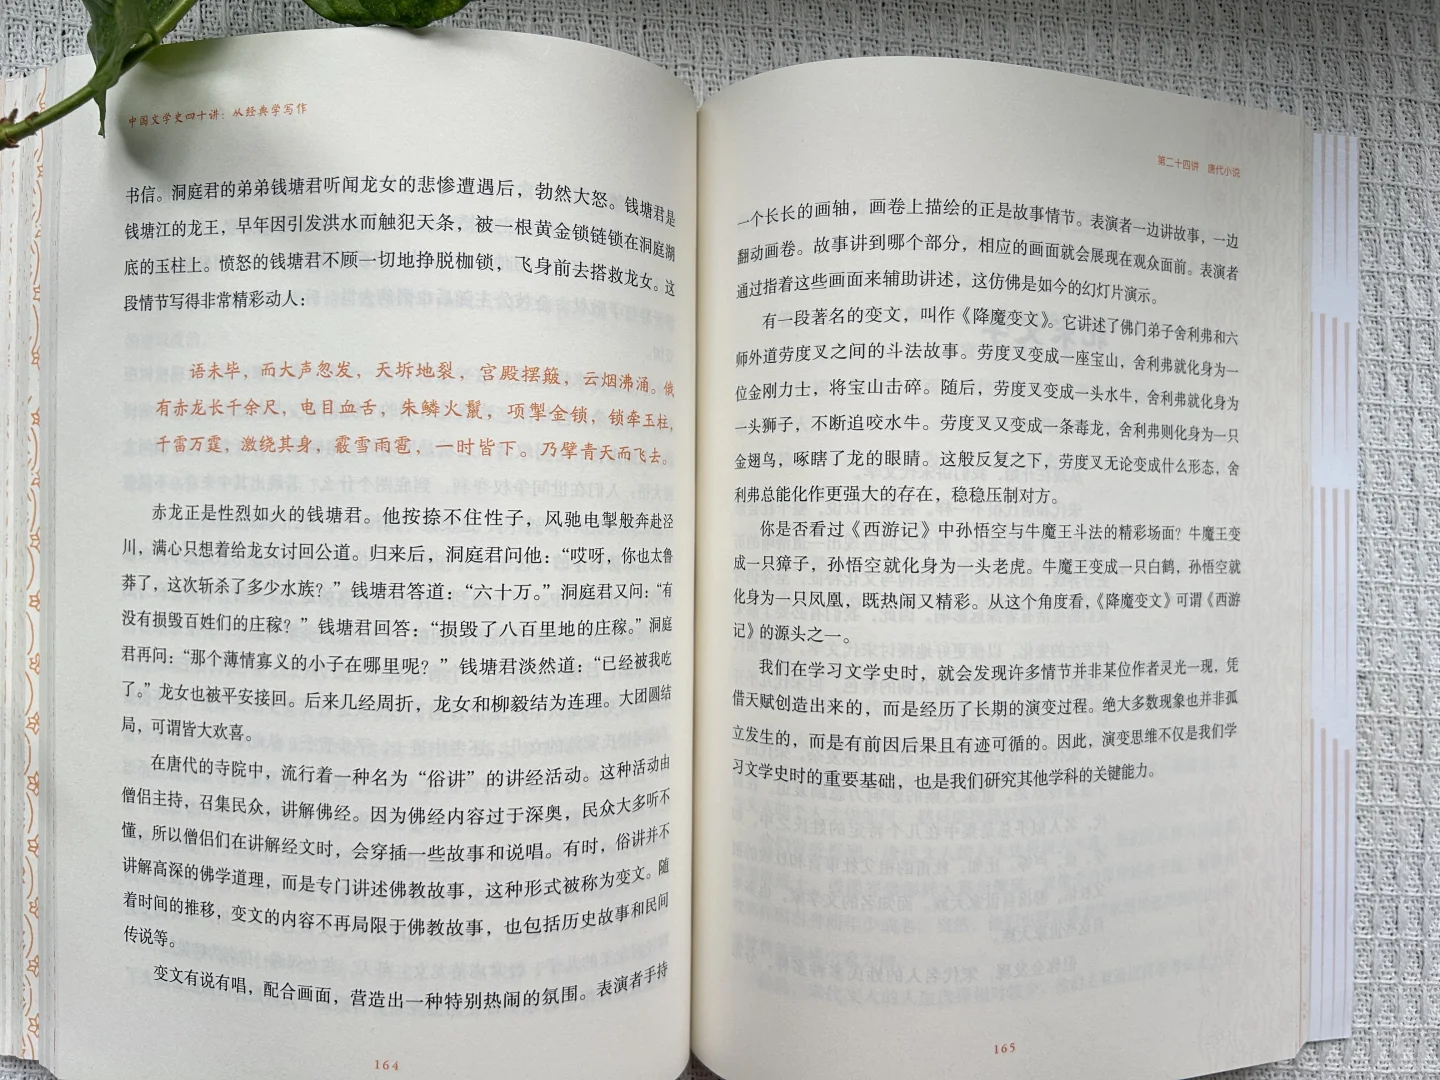 中国文学史四十讲：从经典学写作
书信。洞庭君的弟弟钱塘君听闻龙女的悲惨遭遇后，勃然大怒。钱塘君是
钱塘江的龙王，早年因引发洪水而触犯天条，被一根黄金锁链锁在洞庭湖
底的玉柱上。愤怒的钱塘君不顾一切地挣脱枷锁，飞身前去搭救龙女。这
段情节写得非常精彩动人：
语未毕，而大声忽发，天坼地裂，宫殿摆簸，云烟沸涌。俄
有赤龙长千余尺，电目血舌，朱鳞火鬣，项掣金锁，锁牵玉柱，
千雷万霆，激绕其身，霰雪雨雹，一时皆下。乃擘青天而飞去。
赤龙正是性烈如火的钱塘君。他按捺不住性子，风驰电掣般奔赴泾
川，满心只想着给龙女讨回公道。归来后，洞庭君问他：“哎呀，你也太鲁
莽了，这次斩杀了多少水族？”钱塘君答道：“六十万。”洞庭君又问：“有
没有损毁百姓们的庄稼？”钱塘君回答：“损毁了八百里地的庄稼。”洞庭
君再问：“那个薄情寡义的小子在哪里呢？”钱塘君淡然道：“已经被我吃
了。”龙女也被平安接回。后来几经周折，龙女和柳毅结为连理。大团圆结
局，可谓皆大欢喜。
在唐代的寺院中，流行着一种名为“俗讲”的讲经活动。这种活动由
僧侣主持，召集民众，讲解佛经。因为佛经内容过于深奥，民众大多听不
懂，所以僧侣们在讲解经文时，会穿插一些故事和说唱。有时，俗讲并不
讲解高深的佛学道理，而是专门讲述佛教故事，这种形式被称为变文。随
着时间的推移，变文的内容不再局限于佛教故事，也包括历史故事和民间
传说等。
变文有说有唱，配合画面，营造出一种特别热闹的氛围。表演者手持
164
第二十四讲 唐代小说
一个长长的画轴，画卷上描绘的正是故事情节。表演者一边讲故事，一边
翻动画卷。故事讲到哪个部分，相应的画面就会展现在观众面前。表演者
通过指着这些画面来辅助讲述，这仿佛是如今的幻灯片演示。
有一段著名的变文，叫作《降魔变文》。它讲述了佛门弟子舍利弗和六
师外道劳度叉之间的斗法故事。劳度叉变成一座宝山，舍利弗就化身为一
位金刚力士，将宝山击碎。随后，劳度叉变成一头水牛，舍利弗就化身为
一头狮子，不断追咬水牛。劳度叉又变成一条毒龙，舍利弗则化身为一只
金翅鸟，啄瞎了龙的眼睛。这般反复之下，劳度叉无论变成什么形态，舍
利弗总能化作更强大的存在，稳稳压制对方。
你是否看过《西游记》中孙悟空与牛魔王斗法的精彩场面？牛魔王变
成一只獐子，孙悟空就化身为一头老虎。牛魔王变成一只白鹤，孙悟空就
化身为一只凤凰，既热闹又精彩。从这个角度看，《降魔变文》可谓《西游
记》的源头之一。
我们在学习文学史时，就会发现许多情节并非某位作者灵光一现，凭
借天赋创造出来的，而是经历了长期的演变过程。绝大多数现象也并非孤
立发生的，而是有前因后果且有迹可循的。因此，演变思维不仅是我们学
习文学史时的重要基础，也是我们研究其他学科的关键能力。
165